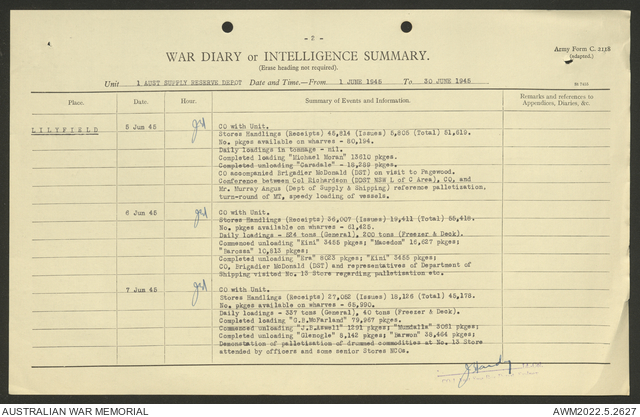 - 2 -
Army Form C. 2118
(adapted.)
WAR DIARY or INTELLIGENCE SUMMARY.
(Erase heading not required).
Unit 1 AUST SUPPLY RESERVE DEPOT Date and Time.—From 1 JUNE 1945 To 30 JUNE 1945
Place. Date. Hour. Summary of Events and Information. Remarks and references to
Appendices, Diaries, &c.
LILYFIELD 5 Jun 45 CO with Unit.
Stores Handlings (Receipts) 45,814 (Issues) 5,805 (Total) 51,619.
No. pkges available on wharves - 80,194.
Daily loadings in tonnage - nil.
Completed loading "Michael Moran" 13610 pkges.
Completed unloading "Caradale" - 18,289 pkges.
CO accompanied Brigadier McDonald (DST) on visit to Pagewood.
Conference between Col Richardson (EOST NSW L of C Area), CO, and
Mr. Murray Angus (Dept of Supply & Shipping) reference palletization,
turn-round of MT, speedy loading of vessels.
6 Jun 45 CO with Unit.
Stores Handlings (Receipts) 36,007 (Issues) 19,411 (Total) 55,418.
No. pkges available on wharves - 61,425.
Daily loadings - 524 tons (General), 200 tons (Freezer & Deck).
Commenced unloading "Kini" 3455 pkges; "Macedon" 16,627 pkges;
"Barossa" 10,813 pkges;
Completed unloading "Era" 8023 pkges; "Kini" 3455 pkges;
CO, Brigadier McDonald (DST) and representatives of Department of
Shipping visited No. 13 Store regarding palletisation etc.
7 Jun 45 CO with Unit.
Stores Handlings (Receipts) 27,052 (Issues) 18,126 (Total) 45,178.
No. pkges available on wharves - 68,990.
Daily loadings - 337 tons (General), 40 tons (Freezer & Deck).
Completed loading "G.B.McFarland" 79,967 pkges.
Commenced unloading "J.B.Aswell" 1291 pkges; "Mundalla" 3061 pkges;
Completed unloading "Glenogle" 8,142 pkges; "Barwon" 38,464 pkges;
Demonstration of palletisation of drummed commodities at No. 13 Store
attended by officers and some senior Stores NCOs.
AUSTRALIAN WAR MEMORIAL AWM2022.5.2627